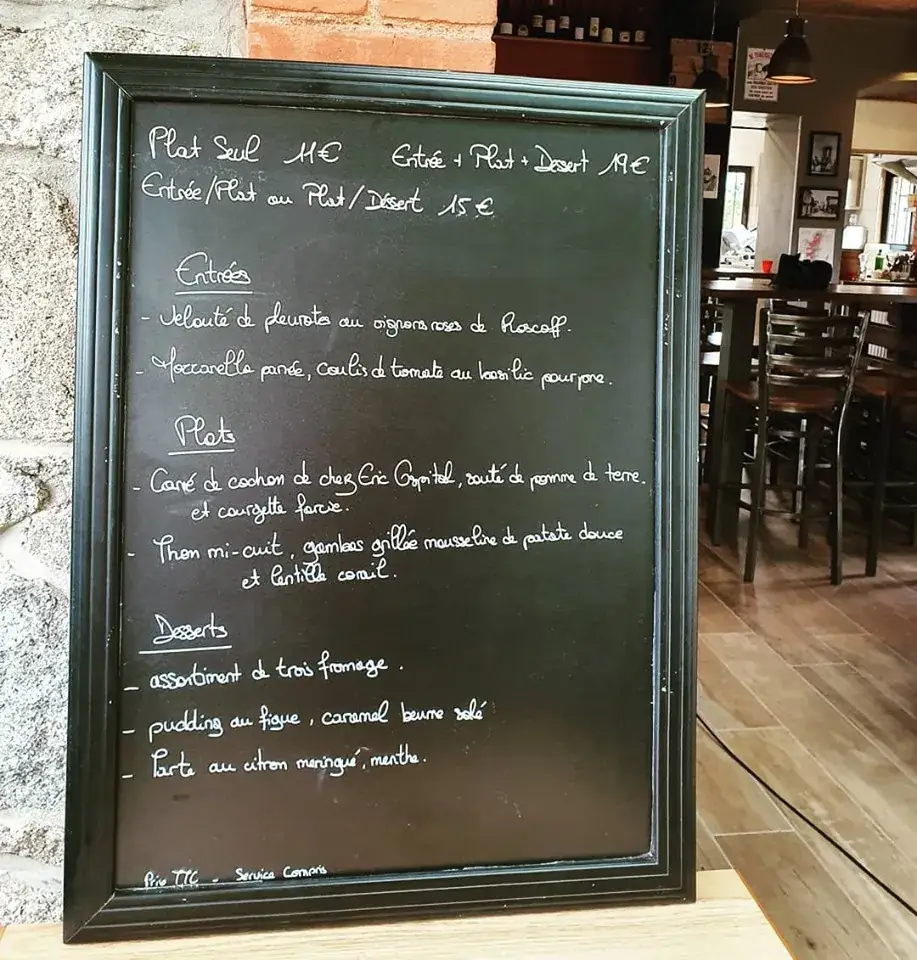 Plat Seul 11€ Entrée + Plat + Dessert 19€
Entrée/Plat ou Plat/Déssert 15€
Entrées
- Velouté de pleurotes au oignons roses de Roscoff.
- Mozzarella panée, coulis de tomate au basilic pourpre.
Plats
- Carré de cochon de chez Eric Ospital, sauté de pomme de terre.
et courgette farcie.
- Thon mi-cuit, gambas grillée mousseline de patate douce
et lentille corail.
Desserts
- assortiment de trois fromage.
- pudding au figue, caramel beurre salé
- Tarte au citron meringué, menthe.
Prix TTC - Service Compris